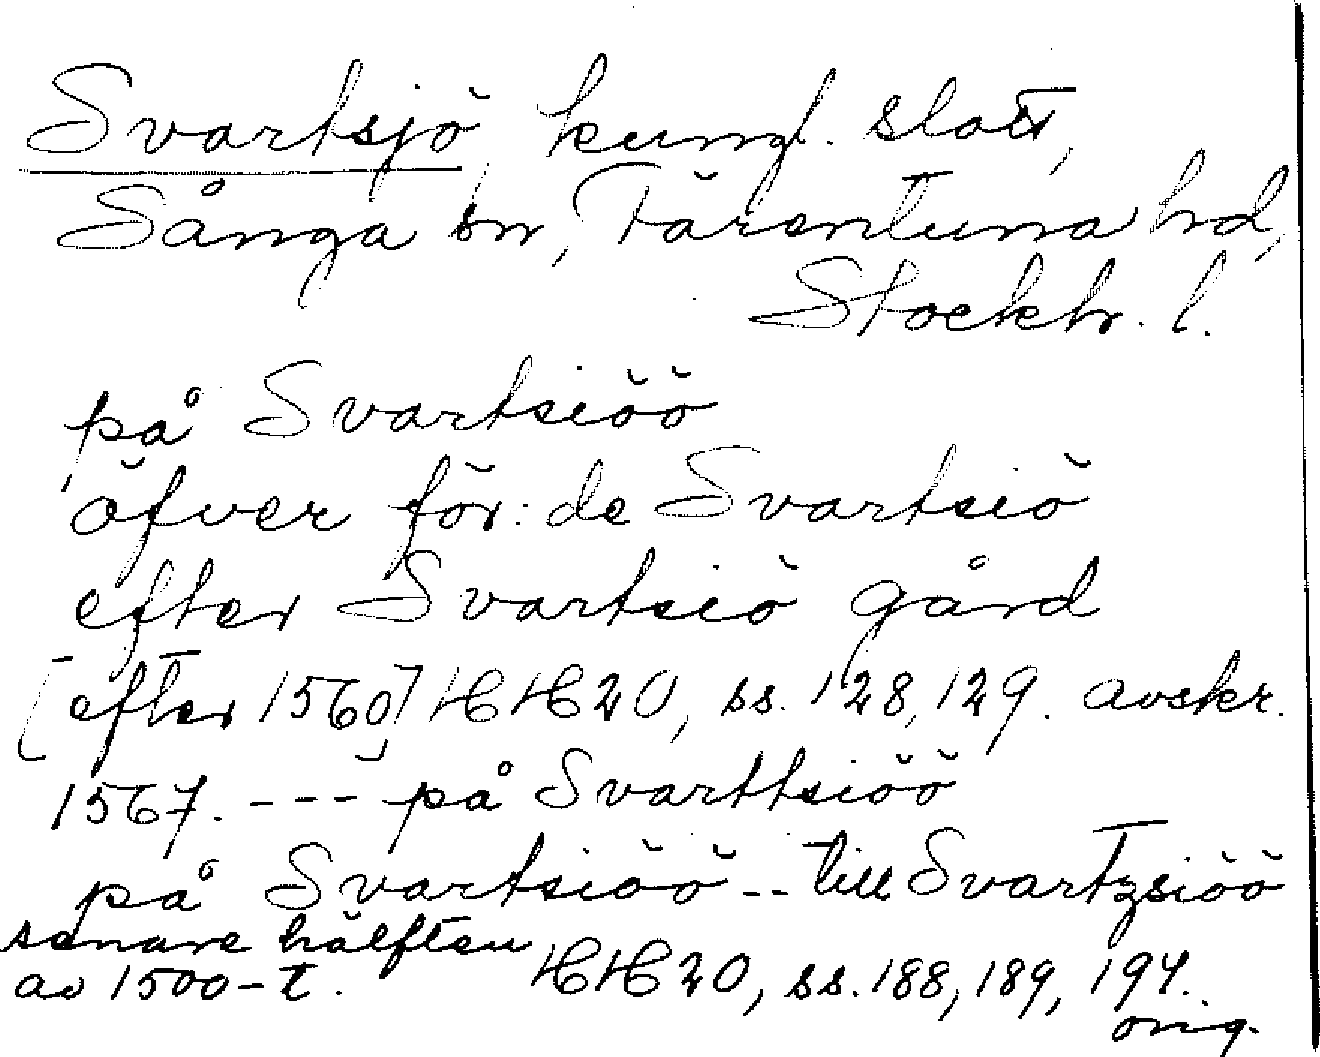 Svartsjö, kungl. slott,
Sånga sn, Färentuna hd,
Stockh. l.
på Svartsiöö
öfver för: de Svartsiö
efter Svartsiö gård
[efter 1560] HH 20, ss. 128, 129. avskr.
1567. --- på Svarttsiöö
på Svartsiöö -- till Svartzsiöö
senare hälften
av 1500-t. HH 20, ss. 188, 189, 194.
orig.